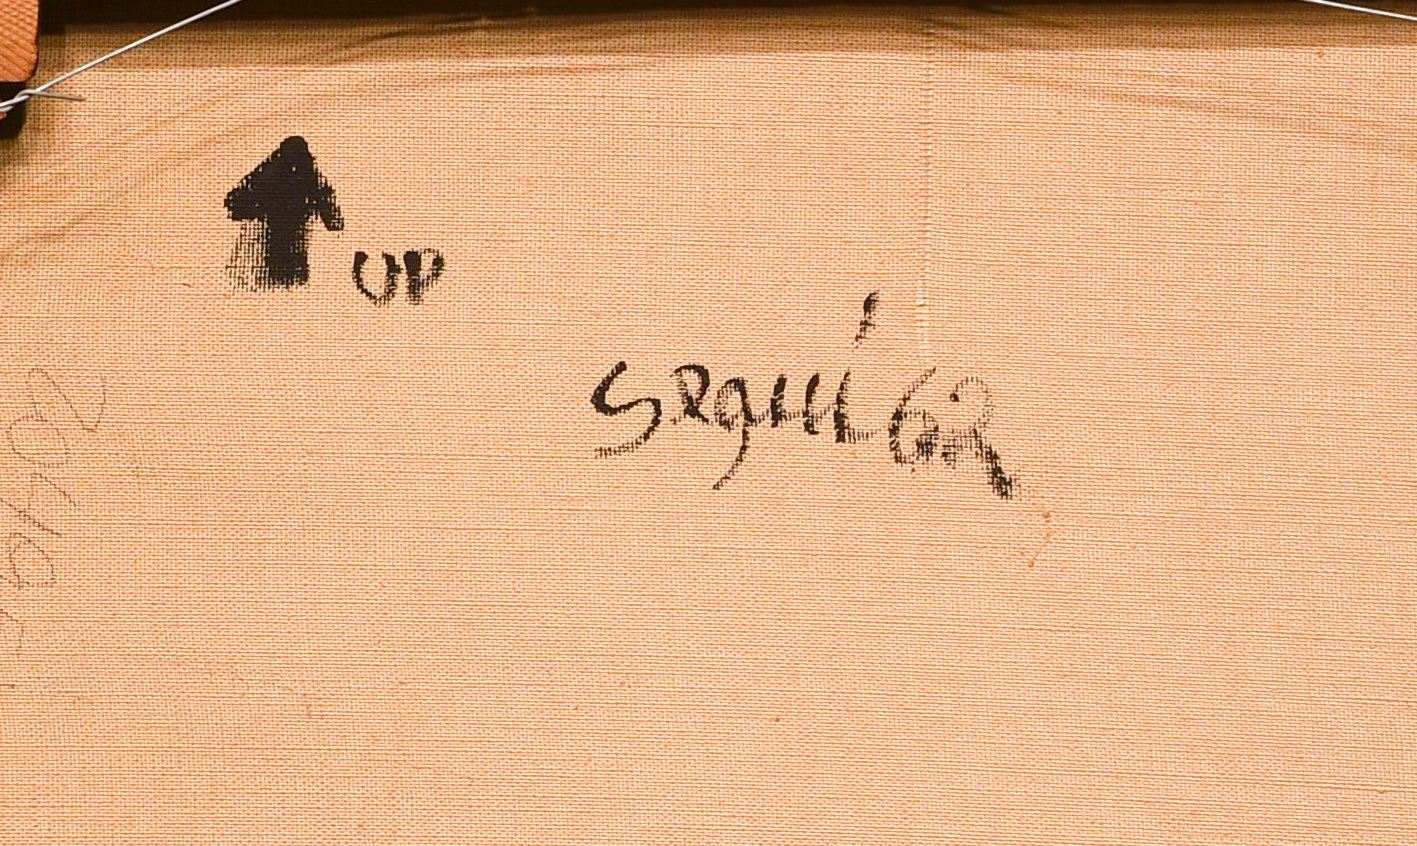 UP
Seguí 62